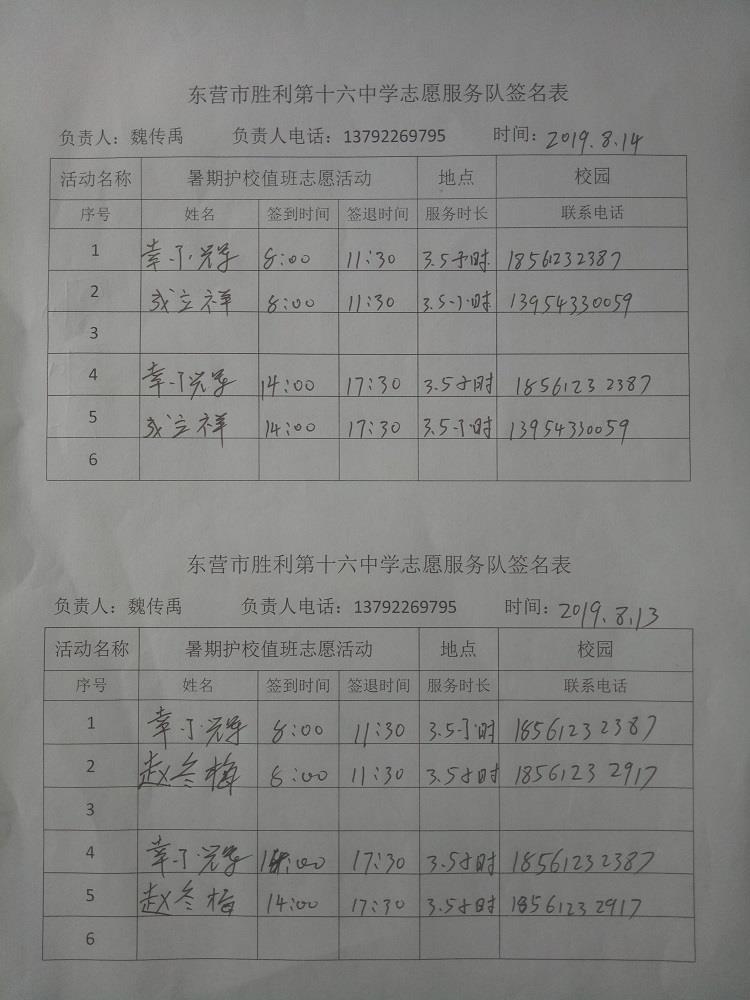 东营市胜利第十六中学志愿服务队签名表
负责人：魏传禹 负责人电话：13792269795 时间：2019.8.14
活动名称 暑期护校值班志愿活动 地点 校园
序号 姓名 签到时间 签退时间 服务时长 联系电话
1 8:00 11:30 3.5小时 18561232387
2 成立祥 8:00 11:30 3.5小时 13954330059
3
4 14:00 17:30 3.5小时 18561232387
5 成立祥 14:00 17:30 3.5小时 13954330059
6
东营市胜利第十六中学志愿服务队签名表
负责人：魏传禹 负责人电话：13792269795 时间：2019.8.13
活动名称 暑期护校值班志愿活动 地点 校园
序号 姓名 签到时间 签退时间 服务时长 联系电话
1 8:00 11:30 3.5小时 18561232387
2 赵冬梅 8:00 11:30 3.5小时 18561232917
3
4 14:00 17:30 3.5小时 18561232387
5 赵冬梅 14:00 17:30 3.5小时 18561232917
6